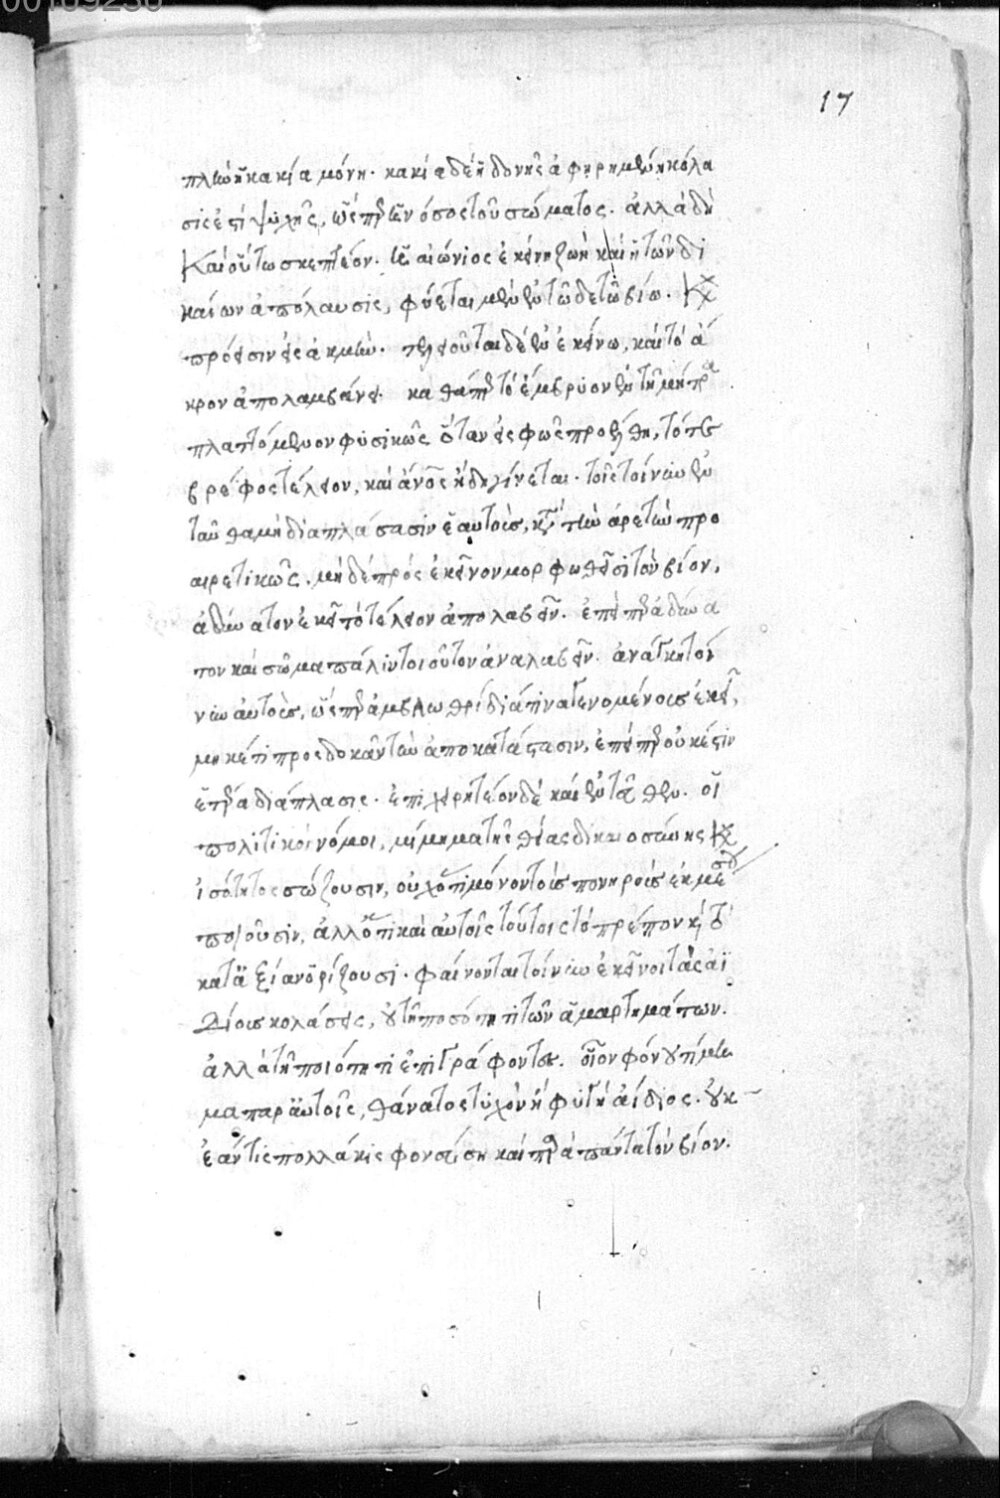 00169236
17
πλὴν ἡ κακία μόνη. κακία δὲ ἡδονῆς ἀφῃρημένη κόλα
σίς ἐστι ψυχῆς, ὥσπερ νόσος τοῦ σώματος. ἀλλὰ δὴ
καὶ οὕτω σκεπτέον. ἡ αἰώνιος ἐκείνη ζωὴ καὶ ἡ τῶν δι
καίων ἀπόλαυσις, φύεται μὲν ἐν τῶδε τῶ βίω. καὶ
πρόεισιν εἰς ἀκμήν. τελειοῦται δὲ ἐν ἐκείνω, καὶ τὸ ἄ
κρον ἀπολαμβάνει. καθάπερ τὸ ἔμβρυον ἐν τῆ μήτρα
πλαττόμενον φυσικῶς ὅταν εἰς φῶς προέλθη, τότε
βρέφος τέλειον, καὶ ἄνος ἤδη γίνεται. τοῖς τοίνυν ἐν
ταῦθα μὴ διαπλάσασιν ἑαυτοὺς, κατὰ τὴν ἀρετὴν προ
αιρετικῶς. μηδὲ πρὸς ἐκεῖνον μορφωθεῖσι τὸν βίον,
ἀδύνατον ἐκεῖ τὸ τέλειον ἀπολαβεῖν. ἐπείπερ ἀδύνα
τον καὶ σῶμα πάλιν τοιοῦτον ἀναλαβεῖν. ἀνάγκη τοί
νυν αὐτοὺς, ὥσπερ ἀμβλωθρίδιά τινα γενομένους ἐκεῖ,
μηκέτι προσδοκᾶν τὴν ἀποκατάστασιν, ἐπείπερ οὐκέτιν
ἑτέρα διάπλασις. ἐπιχειρητέον δὲ καὶ ἐνταῦθεν. οἱ
πολιτικοὶ νόμοι, μίμημα τῆς θείας δικαιοσύνης καὶ
ἰσότητος σώζουσιν, οὐχ ὅτι μόνον τοὺς πονηροὺς ἐκ μέσου
ποιοῦσιν, ἀλλ ὅτι καὶ αὐτοῖς τούτοις τὸ πρέπον καὶ τὸ
κατ ἀξίαν ὁρίζουσι. φαίνονται τοίνυν ἐκεῖνοι τὰς ἀϊ
δίους κολάσεις, οὐ τῆ ποσότητι τῶν ἁμαρτημάτων.
ἀλλὰ τῆ ποιότητι ἐπιγράφοντες. οἷον φόνου τίμη
μα παρ αὐτοῖς, θάνατος τυχὸν ἢ φυγὴ ἀΐδιος. οὐκ
ἐάν τις πολλάκις φονεύση καὶ παρ ἅπαντα τὸν βίον.